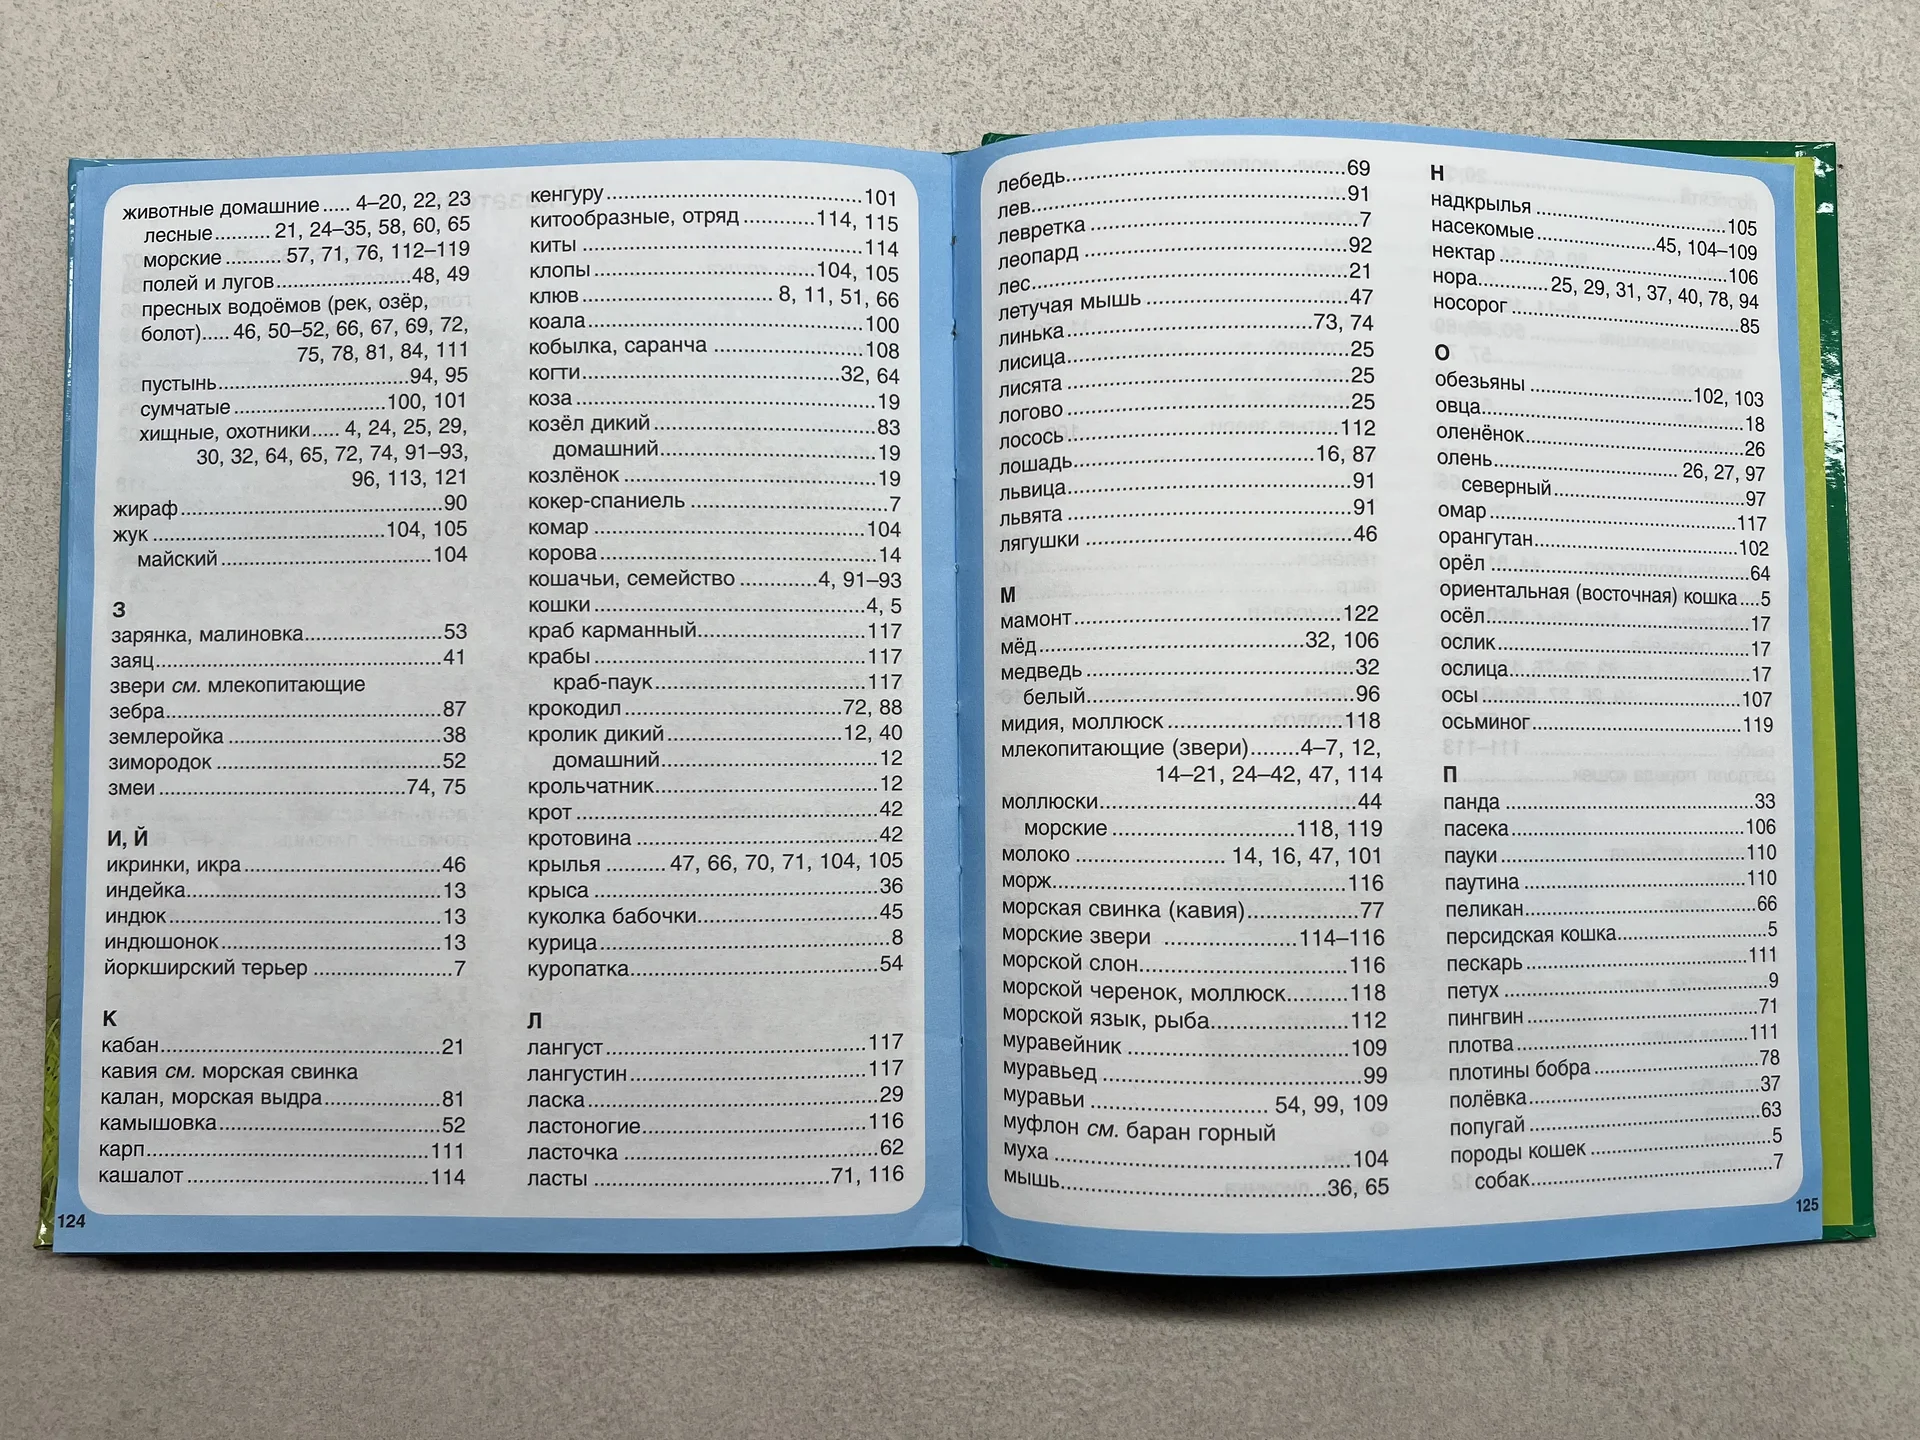 животные домашние..... 4–20, 22, 23
лесные......... 21, 24–35, 58, 60, 65
морские......... 57, 71, 76, 112–119
полей и лугов...............48, 49
пресных водоёмов (рек, озёр,
болот)..... 46, 50–52, 66, 67, 69, 72,
75, 78, 81, 84, 111
пустынь............................94, 95
сумчатые......................100, 101
хищные, охотники..... 4, 24, 25, 29,
30, 32, 64, 65, 72, 74, 91–93,
96, 113, 121
жираф.......................................90
жук..................................104, 105
майский...............................104
З
зарянка, малиновка....................53
заяц..........................................41
звери см. млекопитающие
зебра........................................87
землеройка................................38
зимородок.................................52
змеи....................................74, 75
И, Й
икринки, икра.............................46
индейка.....................................13
индюк........................................13
индюшонок................................13
йоркширский терьер....................7
К
кабан.........................................21
кавия см. морская свинка
калан, морская выдра.................81
камышовка.................................52
карп.........................................111
кашалот...................................114
кенгуру.....................................101
китообразные, отряд..........114, 115
киты.........................................114
клопы................................104, 105
клюв............................ 8, 11, 51, 66
коала........................................100
кобылка, саранча......................108
когти.....................................32, 64
коза...........................................19
козёл дикий................................83
домашний...............................19
козлёнок....................................19
кокер-спаниель...........................7
комар.......................................104
корова.......................................14
кошачьи, семейство............4, 91–93
кошки.......................................4, 5
краб карманный........................117
крабы.......................................117
краб-паук..............................117
крокодил..............................72, 88
кролик дикий.........................12, 40
домашний...............................12
крольчатник...............................12
крот...........................................42
кротовина..................................42
крылья......... 47, 66, 70, 71, 104, 105
крыса.........................................36
куколка бабочки.........................45
курица.........................................8
куропатка...................................54
Л
лангуст.....................................117
лангустин.................................117
ласка.........................................29
ластоногие...............................116
ласточка....................................62
ласты..................................71, 116
124
лебедь.......................................69
лев............................................91
левретка......................................7
леопард.....................................92
лес............................................21
летучая мышь............................47
линька..................................73, 74
лисица.......................................25
лисята.......................................25
логово.......................................25
лосось......................................112
лошадь.................................16, 87
львица.......................................91
львята.......................................91
лягушки.....................................46
М
мамонт.....................................122
мёд....................................32, 106
медведь.....................................32
белый.....................................96
мидия, моллюск........................118
млекопитающие (звери).......4–7, 12,
14–21, 24–42, 47, 114
моллюски...................................44
морские..........................118, 119
молоко....................... 14, 16, 47, 101
морж........................................116
морская свинка (кавия)................77
морские звери ...................114–116
морской слон............................116
морской черенок, моллюск..........118
морской язык, рыба....................112
муравейник...............................109
муравьед...................................99
муравьи.......................... 54, 99, 109
муфлон см. баран горный
муха.........................................104
мышь....................................36, 65
Н
надкрылья................................105
насекомые....................45, 104–109
нектар......................................106
нора..........25, 29, 31, 37, 40, 78, 94
носорог......................................85
О
обезьяны...........................102, 103
овца..........................................18
оленёнок....................................26
олень............................. 26, 27, 97
северный................................97
омар.........................................117
орангутан.................................102
орёл..........................................64
ориентальная (восточная) кошка....5
осёл..........................................17
ослик.........................................17
ослица.......................................17
осы..........................................107
осьминог..................................119
П
панда........................................33
пасека......................................106
пауки.......................................110
паутина....................................110
пеликан.....................................66
персидская кошка........................5
пескарь....................................111
петух..........................................9
пингвин.....................................71
плотва......................................111
плотины бобра...........................78
полёвка.....................................37
попугай.....................................63
породы кошек.............................5
собак.......................................7
125